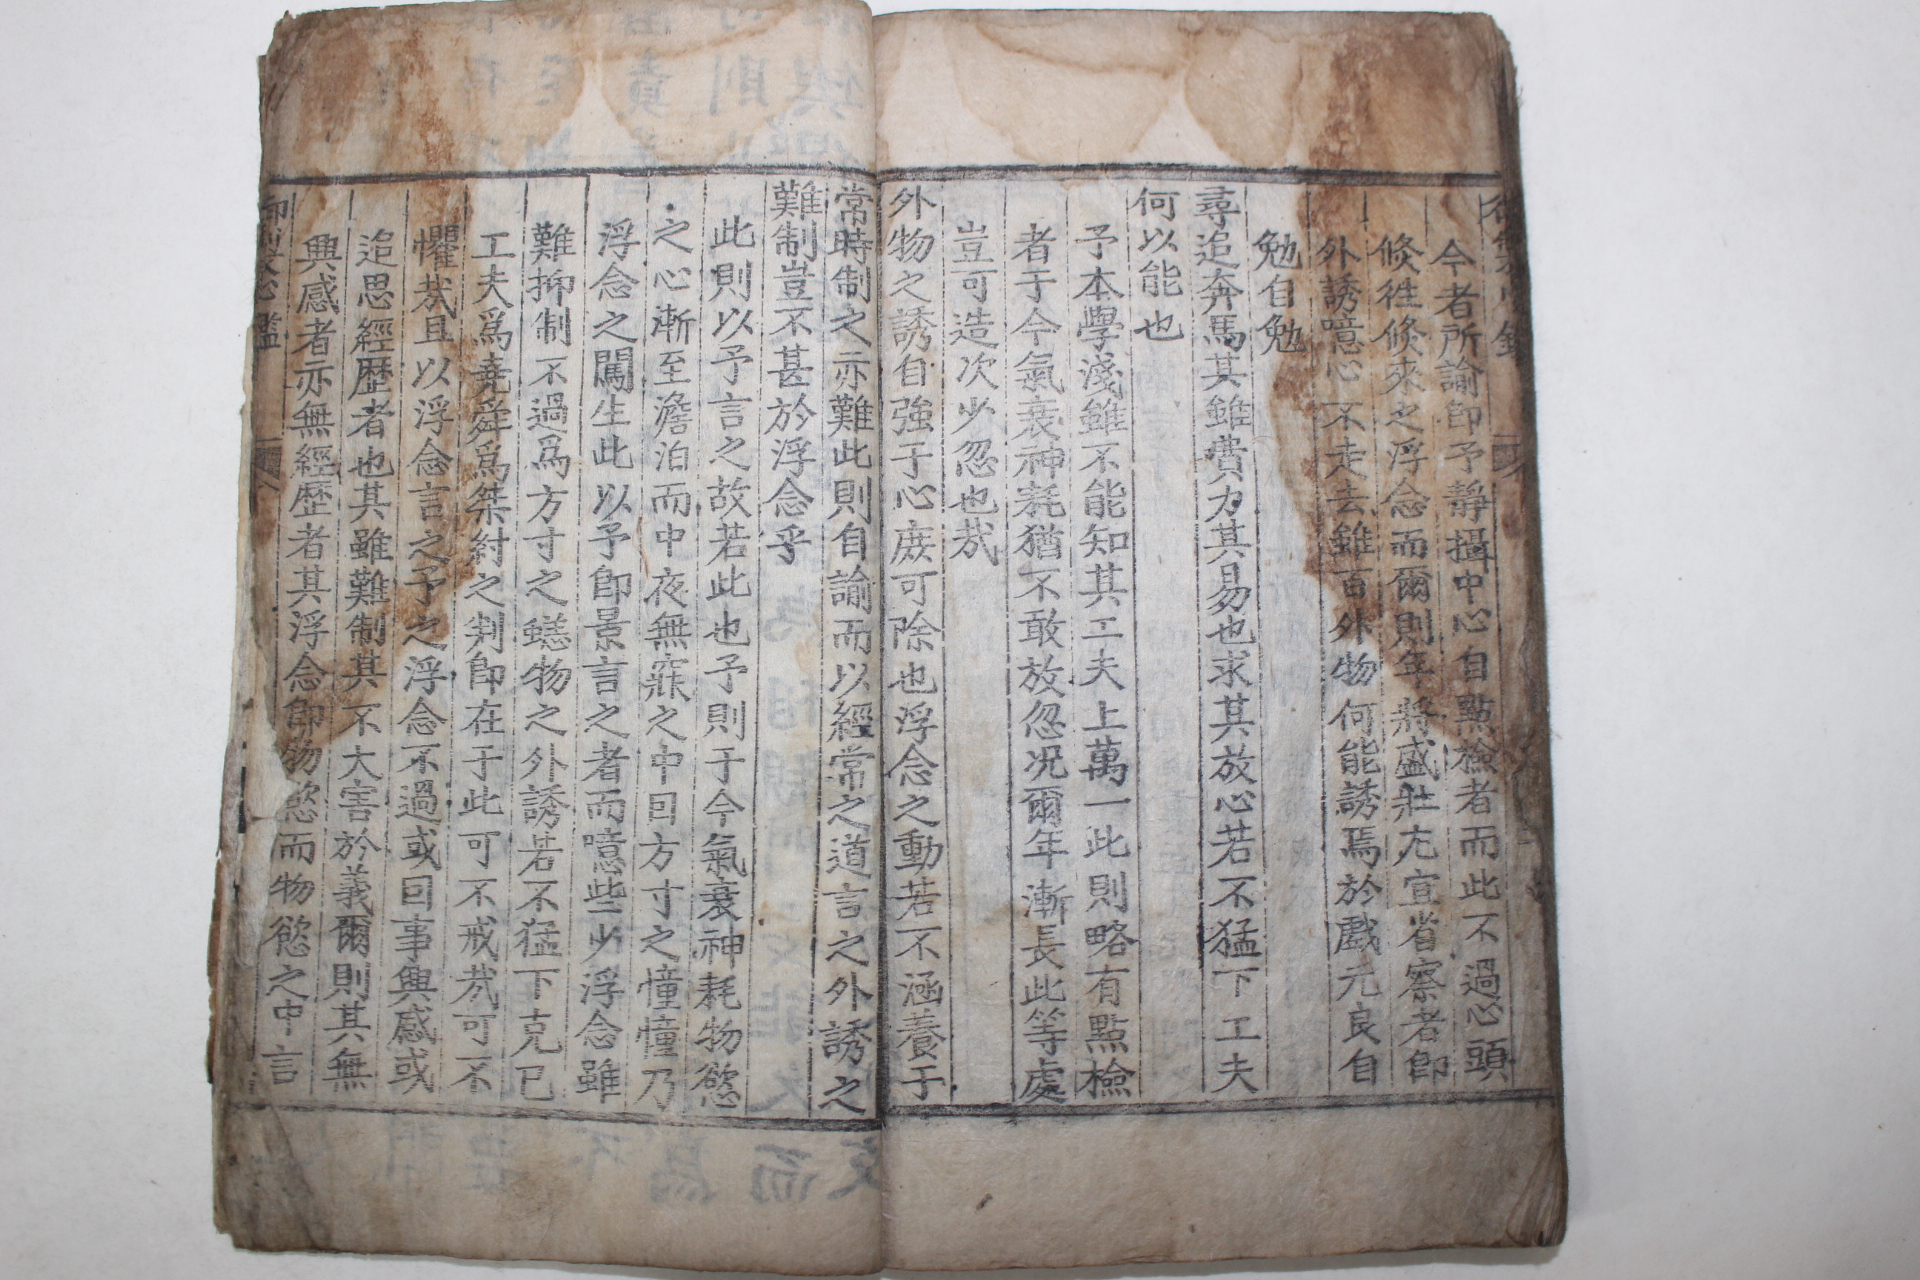 今者所諭卽予靜攝中心自點檢者而此不過心頭
倐徃倐來之浮念而爾則年將盛壯尤宜省察者卽
外誘噫心不走去雖百外物何能誘焉於戱元良自
勉自勉
尋追奔馬其雖費力其易也求其放心若不猛下工夫
何以能也
予本學淺雖不能知其工夫上萬一此則略有點檢
者于今氣衰神耗猶不敢放忽况爾年漸長此等處
豈可造次少忽也㦲
外物之誘自強于心庶可除也浮念之動若不涵養于
常時制之亦難此則自諭而以經常之道言之外誘之
難制豈不甚於浮念乎
此則以予言之故若此也予則于今氣衰神耗物慾
之心漸至澹泊而中夜無寐之中回方寸之憧憧乃
浮念之闖生此以予卽景言之者而噫些少浮念雖
難抑制不過爲方寸之蟋物之外誘若不猛下克己
工夫爲堯舜爲桀紂之判卽在于此可不戒㦲可不
懼㦲且以浮念言之予之浮念不過或回事興感或
追思經歷者也其雖難制其不大害於義爾則其無
興感者亦無經歷者其浮念卽物慾而物慾之中言
心鑑